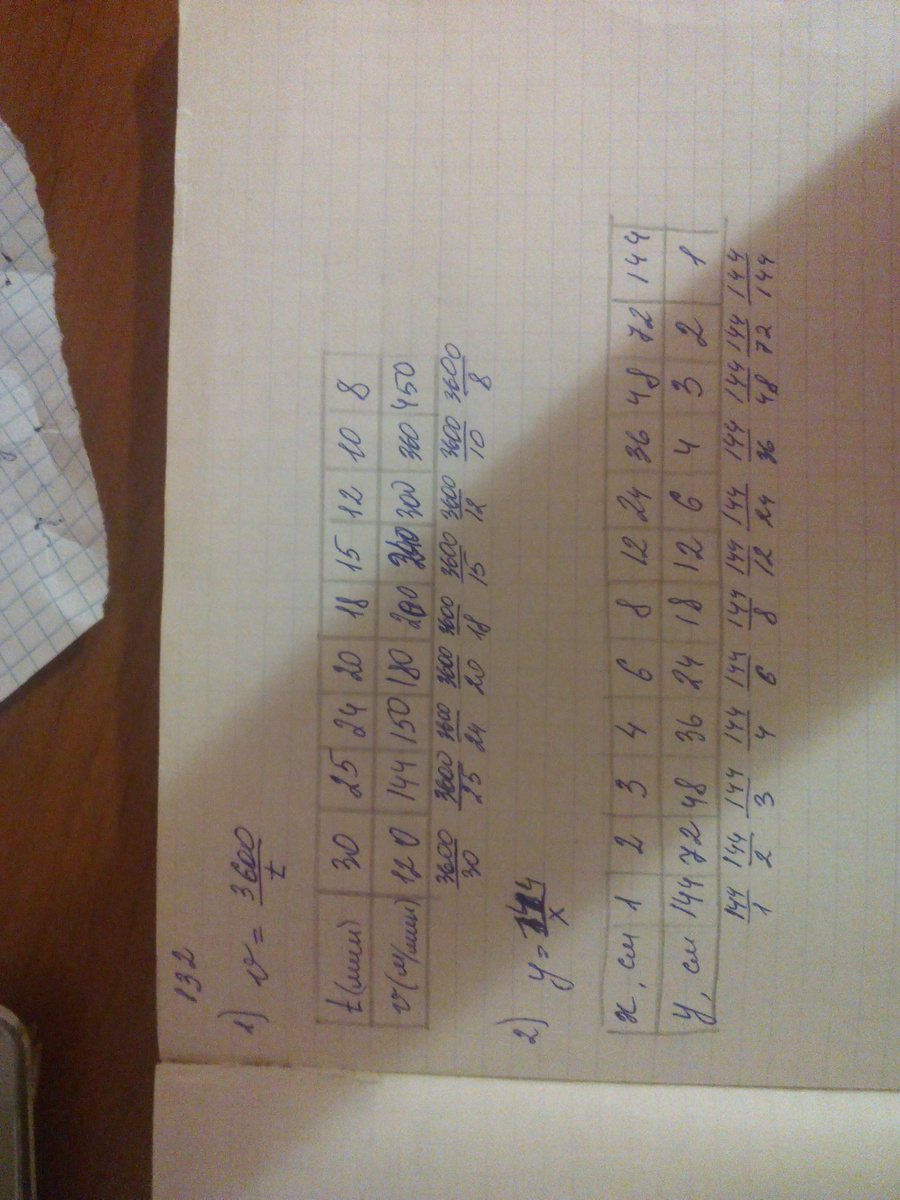 132
1) v = 3600/t
t(мин) 30 25 24 20 18 15 12 10 8
v(м/мин) 120 144 150 180 200 240 300 360 450
3600/30 3600/25 3600/24 3600/20 3600/18 3600/15 3600/12 3600/10 3600/8
2) y = 144/x
x, см 1 2 3 4 6 8 12 24 36 48 72 144
y, см 144 72 48 36 24 18 12 6 4 3 2 1
144/1 144/2 144/3 144/4 144/6 144/8 144/12 144/24 144/36 144/48 144/72 144/144